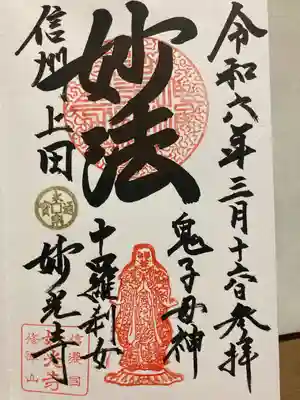 令和六年三月十六日参拝
妙法
鬼子母神
十羅刹女
信州上田
妙光寺
信濃国